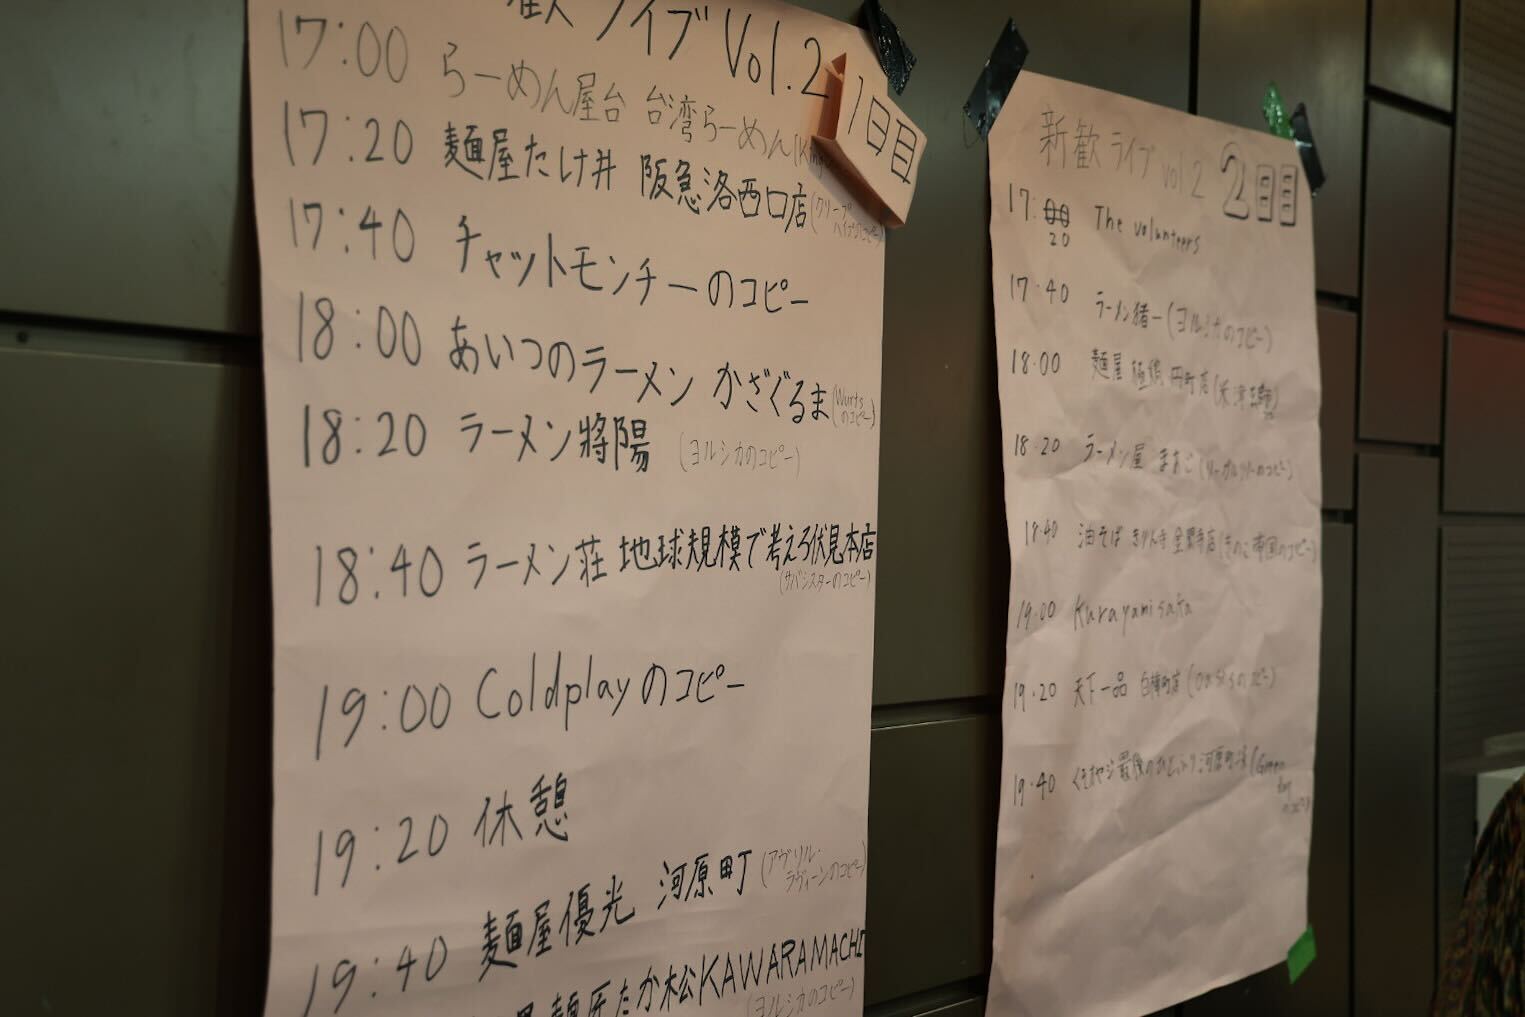 歓ライブ Vol.2
1日目
17:00 らーめん屋台 台湾らーめん
17:20 麺屋たけ井 阪急洛西口店
(クリープ
ハイプのコピー)
17:40 チャットモンチーのコピー
18:00 あいつのラーメン かざぐるま
(Wurts
のコピー)
18:20 ラーメン將陽 (ヨルシカのコピー)
18:40 ラーメン荘 地球規模で考えろ伏見本店
(サバシスターのコピー)
19:00 Coldplayのコピー
19:20 休憩
19:40 麺屋優光 河原町 (アヴリル・
ラヴィーンのコピー)
麺匠たか松KAWARAMACHI
(ヨルシカのコピー)
新歓 ライブ vol 2 2日目
17:00
20 The volunteers
17:40 ラーメン猪一(ヨルシカのコピー)
18:00 麺屋 極鶏 円町店(米津玄師)
18:20 ラーメン屋 (のコピー)
18:40 油そば きりん寺 金閣寺店(きのこ帝国のコピー)
19:00 Kurayamisaka
19:20 天下一品 白梅町店(Oasisのコピー)
19:40 最後のひとふり河原町店(Green
day
のコピー)